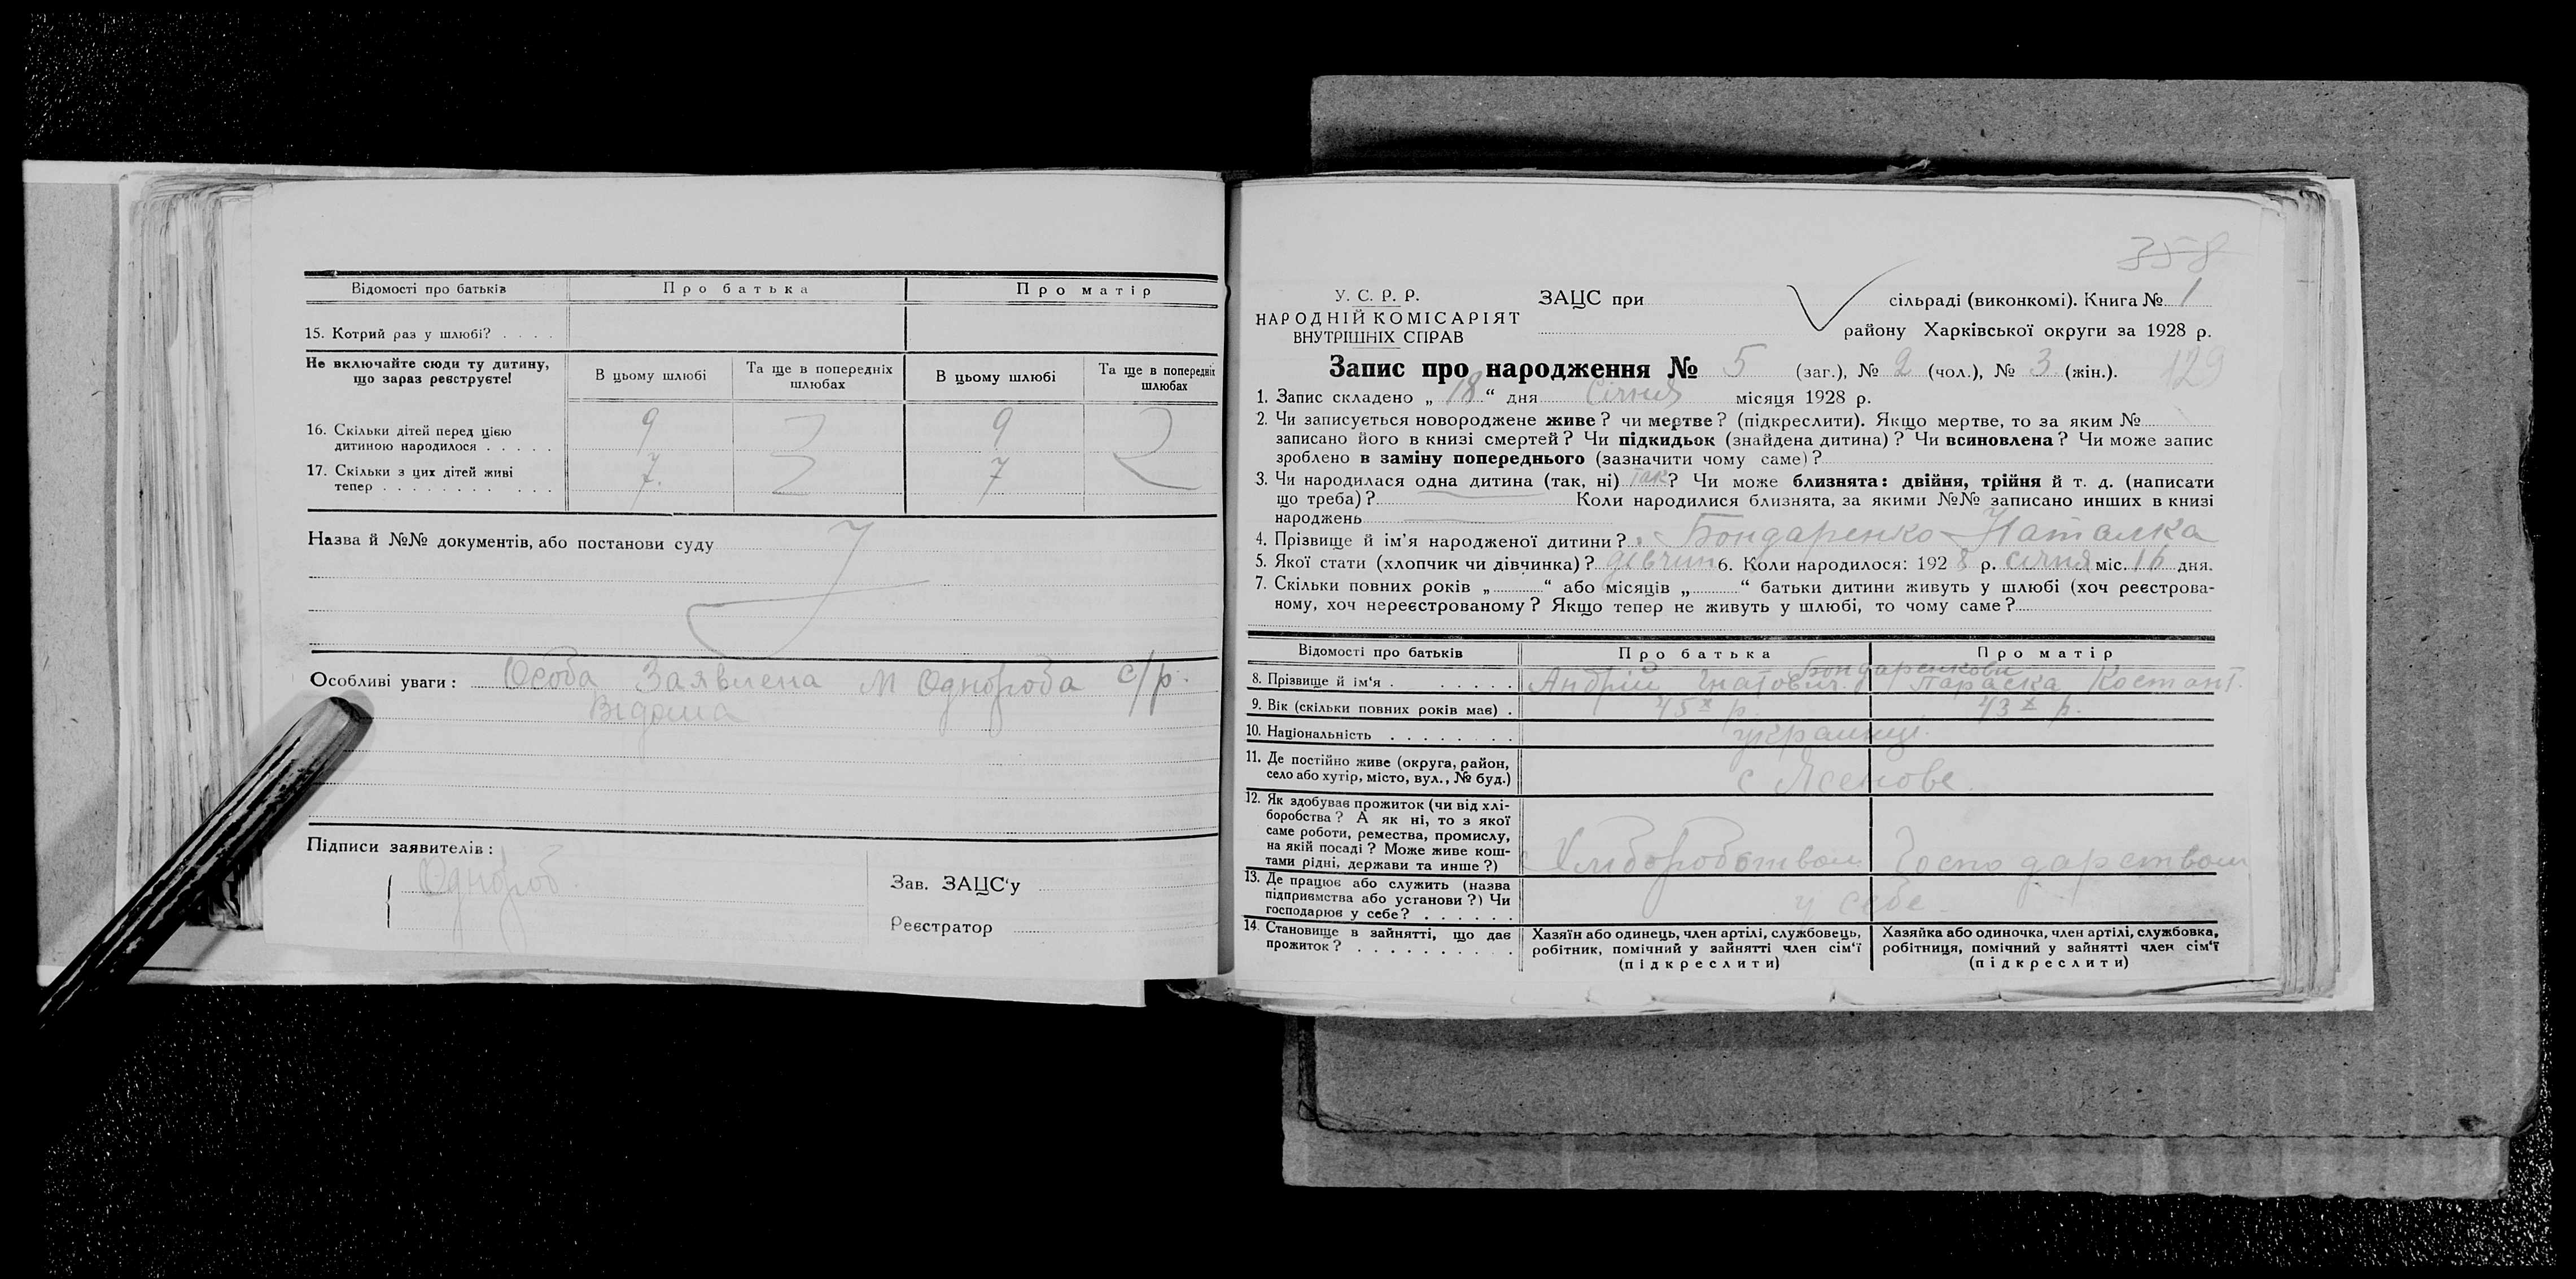 Відомості про батьків Про батька Про матір
15. Котрий раз у шлюбі? . . . .
Не включайте сюди ту дитину, що зараз реєструєте!
В цьому шлюбі
Та ще в попередніх шлюбах
В цьому шлюбі
Та ще в попередніх шлюбах
16. Скільки дітей перед цією
дитиною народилося . . . . . 9 9
17. Скільки з цих дітей живі
тепер . . . . . . . . . . . 7 7
Назва й №№ документів, або постанови суду
Особливі уваги: Особа Заявлена М Однороба с/р.
Відома
Підписи заявителів:
Однороб.
Зав. ЗАЦС'у
Реєстратор
358
У. С. Р. Р.
НАРОДНІЙ КОМІСАРІЯТ
ВНУТРІШНІХ СПРАВ
ЗАЦС при сільраді (виконкомі). Книга № 1
району Харківської округи за 1928 р.
Запис про народження № 5 (заг.), № 2 (чол.), № 3 (жін.). 129
1. Запис складено „ 18 “ дня Січня місяця 1928 р.
2. Чи записується новороджене живе? чи мертве? (підкреслити). Якщо мертве, то за яким №
записано його в книзі смертей? Чи підкидьок (знайдена дитина)? Чи всиновлена? Чи може запис
зроблено в заміну попереднього (зазначити чому саме)?
3. Чи народилася одна дитина (так, ні) так? Чи може близнята: двійня, трійня й т. д. (написати
що треба)? Коли народилися близнята, за якими №№ записано инших в книзі
народжень
4. Прізвище й ім'я народженої дитини? Бондаренко Наталка
5. Якої стати (хлопчик чи дівчинка)? дівчин 6. Коли народилося: 1928 р. січня міс. 16 дня.
7. Скільки повних років „ “ або місяців „ “ батьки дитини живуть у шлюбі (хоч реєстрова-
ному, хоч нереєстрованому? Якщо тепер не живуть у шлюбі, то чому саме?
Відомості про батьків Про батька Про матір
Бондаренкови
8. Прізвище й ім'я . . . . . . . . Андрій Гнатович. Параска Костант.
9. Вік (скільки повних років має) . 45х р. 43х р.
10. Національність . . . . . . . . українці.
11. Де постійно живе (округа, район,
село або хутір, місто, вул., № буд.)
12. Як здобуває прожиток (чи від хлі-
боробства? А як ні, то з якої
саме роботи, ремества, промислу,
на якій посаді? Може живе кош-
тами рідні, держави та инше?) Хліборобством Господарством
13. Де працює або служить (назва
підприємства або установи?) Чи
господарює у себе? . . . . . . у себе
14. Становище в зайнятті, що дає
прожиток? . . . . . . . . . .
Хазяїн або одинець, член артілі, службовець,
робітник, помічний у зайнятті член сім'ї
(підкреслити)
Хазяйка або одиночка, член артілі, службовка,
робітниця, помічний у зайнятті член сім'ї
(підкреслити)